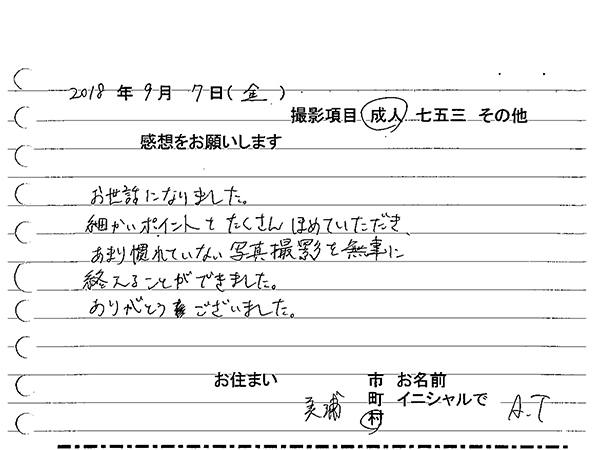 2018 年 9月 7日(金)
撮影項目 成人 七五三 その他
感想をお願いします
お世話になりました。
細かいポイントをたくさんほめていただき、
あまり慣れていない写真撮影を無事に
終えることができました。
ありがとうございました。
お住まい 市 お名前
美浦 町 イニシャルで A.T
村